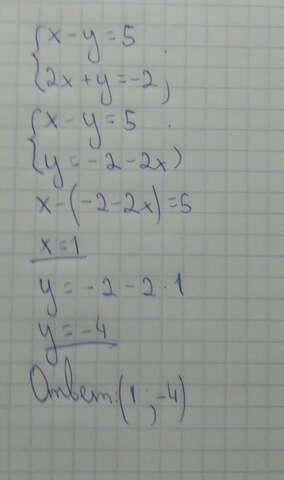 {x - y = 5
{2x + y = -2,
{x - y = 5
{y = -2 - 2x)
x - (-2 - 2x) = 5
x = 1
y = -2 - 2 · 1
y = -4
Ответ: (1 ; -4)